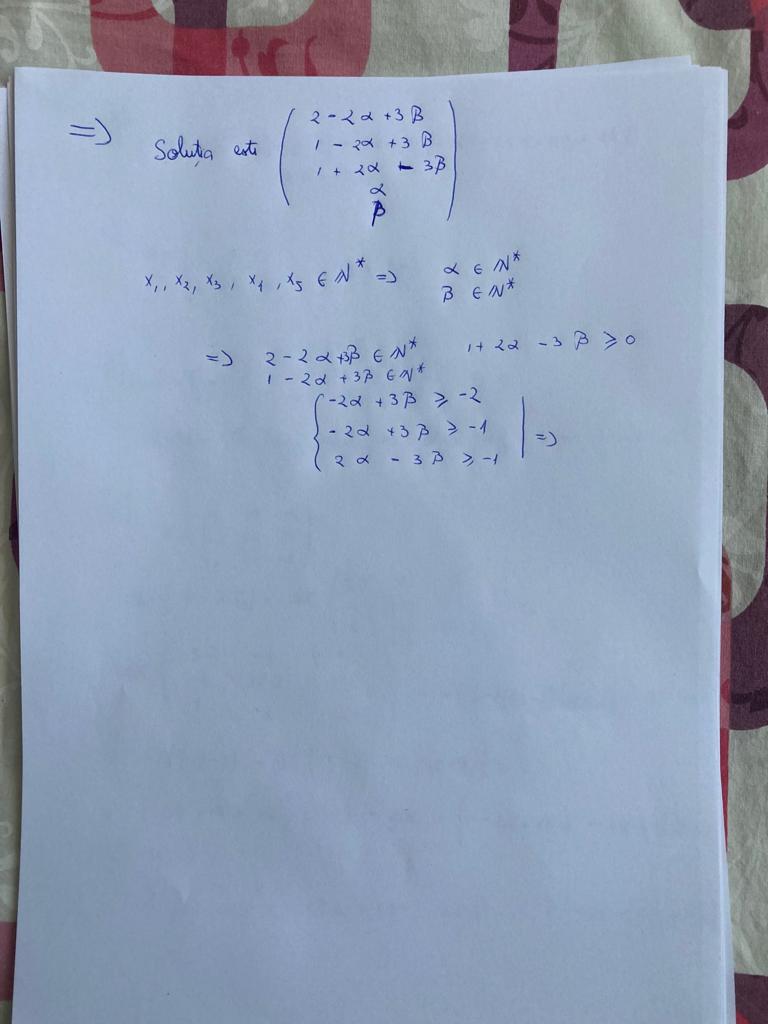 => Soluția este ( 2 - 2α + 3β
1 - 2α + 3β
1 + 2α - 3β
α
β )
x₁, x₂, x₃, x₄, x₅ ∈ ℕ* => α ∈ ℕ*
β ∈ ℕ*
=> 2 - 2α + 3β ∈ ℕ* 1 + 2α - 3β ⩾ 0
1 - 2α + 3β ∈ ℕ*
{ -2α + 3β ⩾ -2
-2α + 3β ⩾ -1 | =>
2α - 3β ⩾ -1